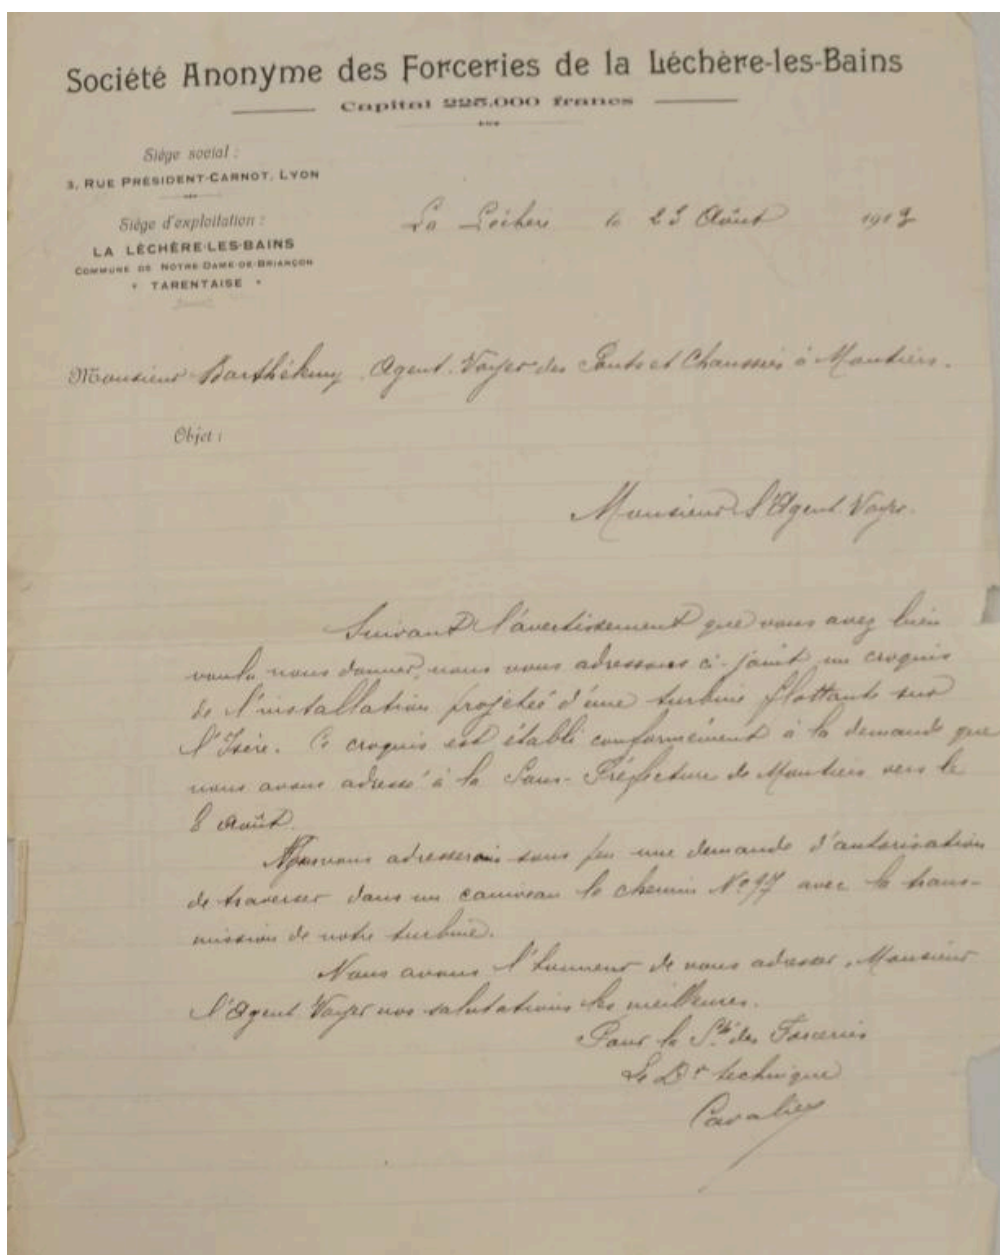 Société Anonyme des Forceries de la Léchère-les-Bains
Capital 225.000 francs
Siège social :
3, RUE PRÉSIDENT-CARNOT, LYON
Siège d'exploitation :
LA LÉCHÈRE-LES-BAINS
COMMUNE DE NOTRE-DAME-DE-BRIANÇON
TARENTAISE
La Léchère le 23 Août 1913
Monsieur Barthélemy Agent-Voyer des Ponts et Chaussées à Moutiers.
Objet :
Monsieur l'Agent-Voyer.
Suivant l'avertissement que vous avez bien
voulu nous donner, nous vous adressons ci-joint un croquis
de l'installation projetée d'une turbine flottante sur
l'Isère. Ce croquis est établi conformément à la demande que
nous avons adressé à la Sous-Préfecture de Moutiers vers le
8 Août.
Nous vous adresserons sous peu une demande d'autorisation
de traverser dans un caniveau le chemin No 97 avec la trans-
mission de notre turbine.
Nous avons l'honneur de vous adresser, Monsieur
l'Agent Voyer nos salutations les meilleures.
Pour la Sté des Forceries
Le Dr technique
Cavalier